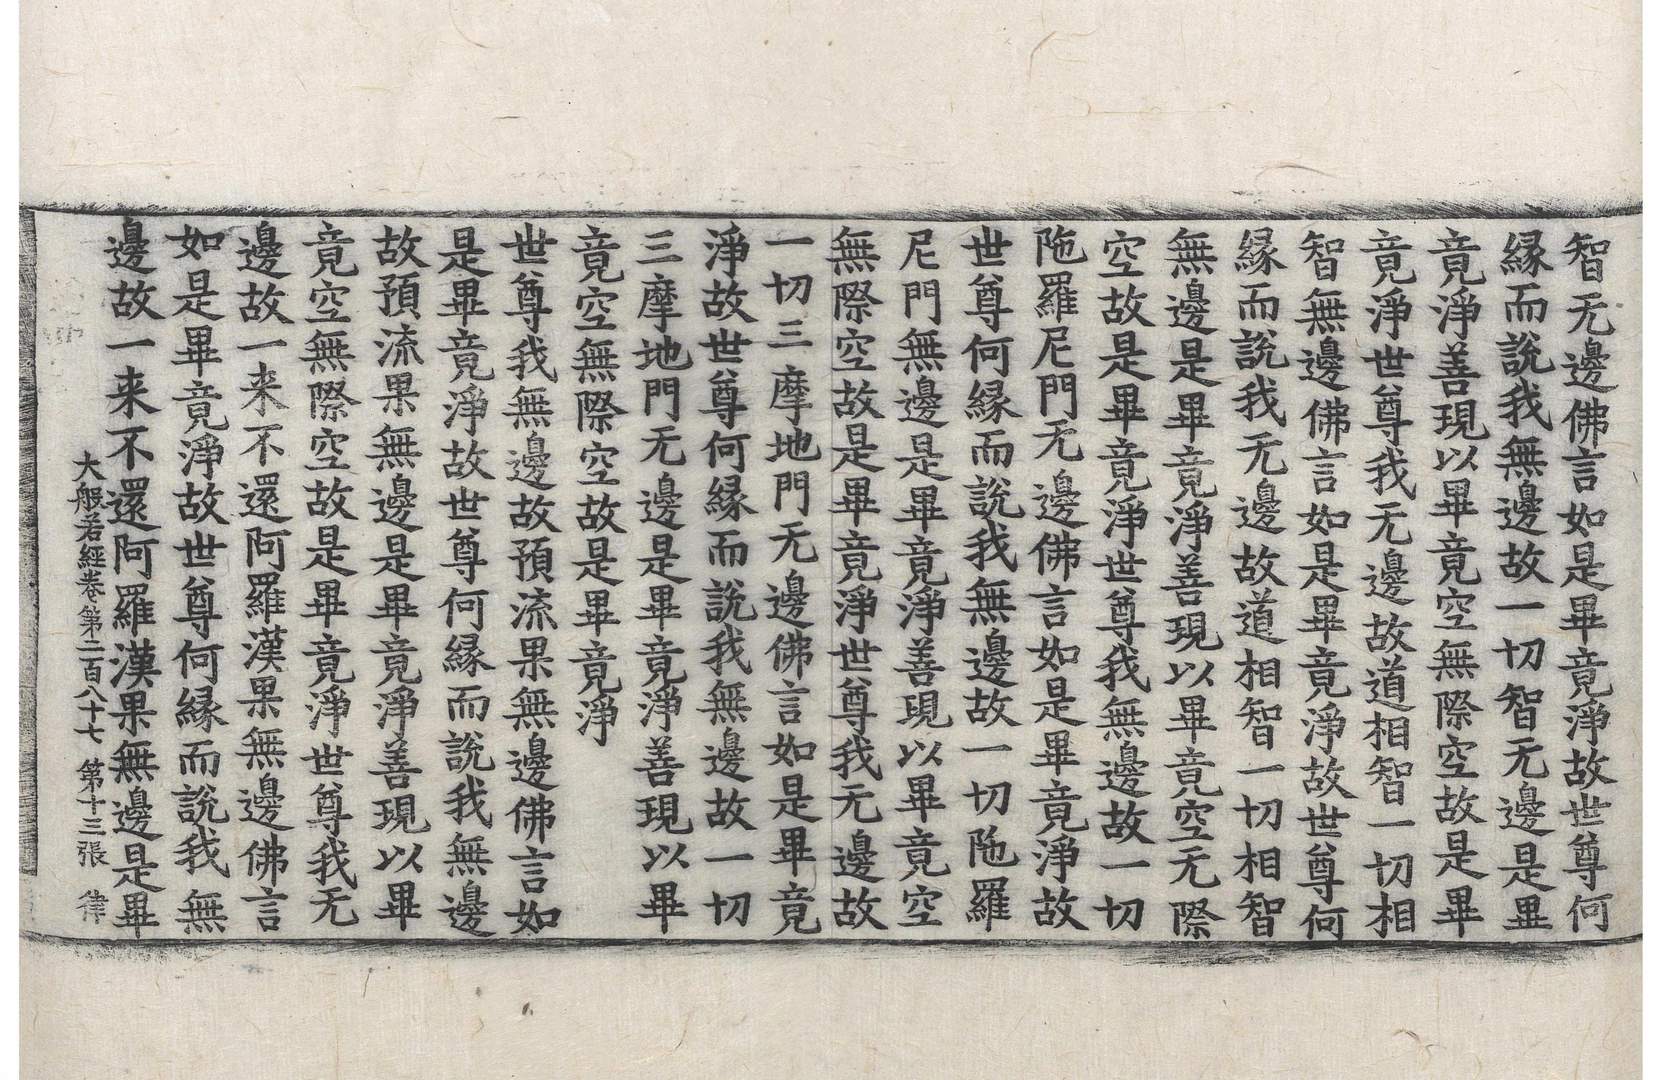 智无邊佛言如是畢竟淨故世尊何
緣而說我無邊故一切智无邊是畢
竟淨善現以畢竟空無際空故是畢
竟淨世尊我无邊故道相智一切相
智無邊佛言如是畢竟淨故世尊何
緣而說我无邊故道相智一切相智
無邊是畢竟淨善現以畢竟空无際
空故是畢竟淨世尊我無邊故一切
陁羅尼門无邊佛言如是畢竟淨故
世尊何緣而說我無邊故一切陁羅
尼門無邊是畢竟淨善現以畢竟空
無際空故是畢竟淨世尊我无邊故
一切三摩地門无邊佛言如是畢竟
淨故世尊何緣而說我無邊故一切
三摩地門无邊是畢竟淨善現以畢
竟空無際空故是畢竟淨
世尊我無邊故預流果無邊佛言如
是畢竟淨故世尊何緣而說我無邊
故預流果無邊是畢竟淨善現以畢
竟空無際空故是畢竟淨世尊我无
邊故一来不還阿羅漢果無邊佛言
如是畢竟淨故世尊何緣而說我無
邊故一来不還阿羅漢果無邊是畢
大般若經卷第二百八十七 第十三張 律